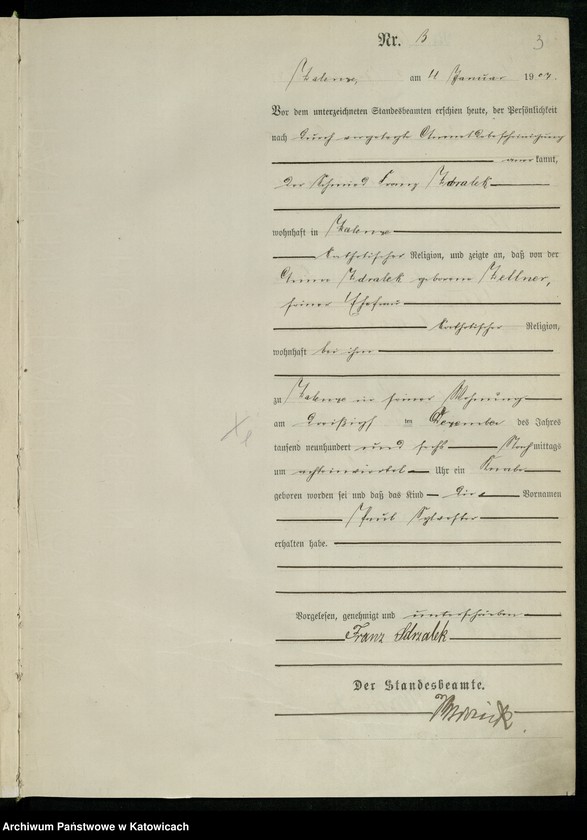 Nr. 3
3
am 4 Januar 1907.
Vor dem unterzeichneten Standesbeamten erschien heute, der Persönlichkeit
nach durch vorgelegte
anerkannt,
der Schmied Franz
wohnhaft in Zalenze
katholischer Religion, und zeigte an, daß von der
geborene Zellner,
seiner Ehefrau
katholischer Religion,
wohnhaft bei ihm
zu Zalenze in seiner Wohnung
am dreißigsten Dezember des Jahres
tausend neunhundert und sechs Nachmittags
um Uhr ein Knabe
geboren worden sei und daß das Kind die Vornamen
Paul Sylvester
erhalten habe.
Vorgelesen, genehmigt und unterschrieben
Franz
Der Standesbeamte.
Archiwum Państwowe w Katowicach